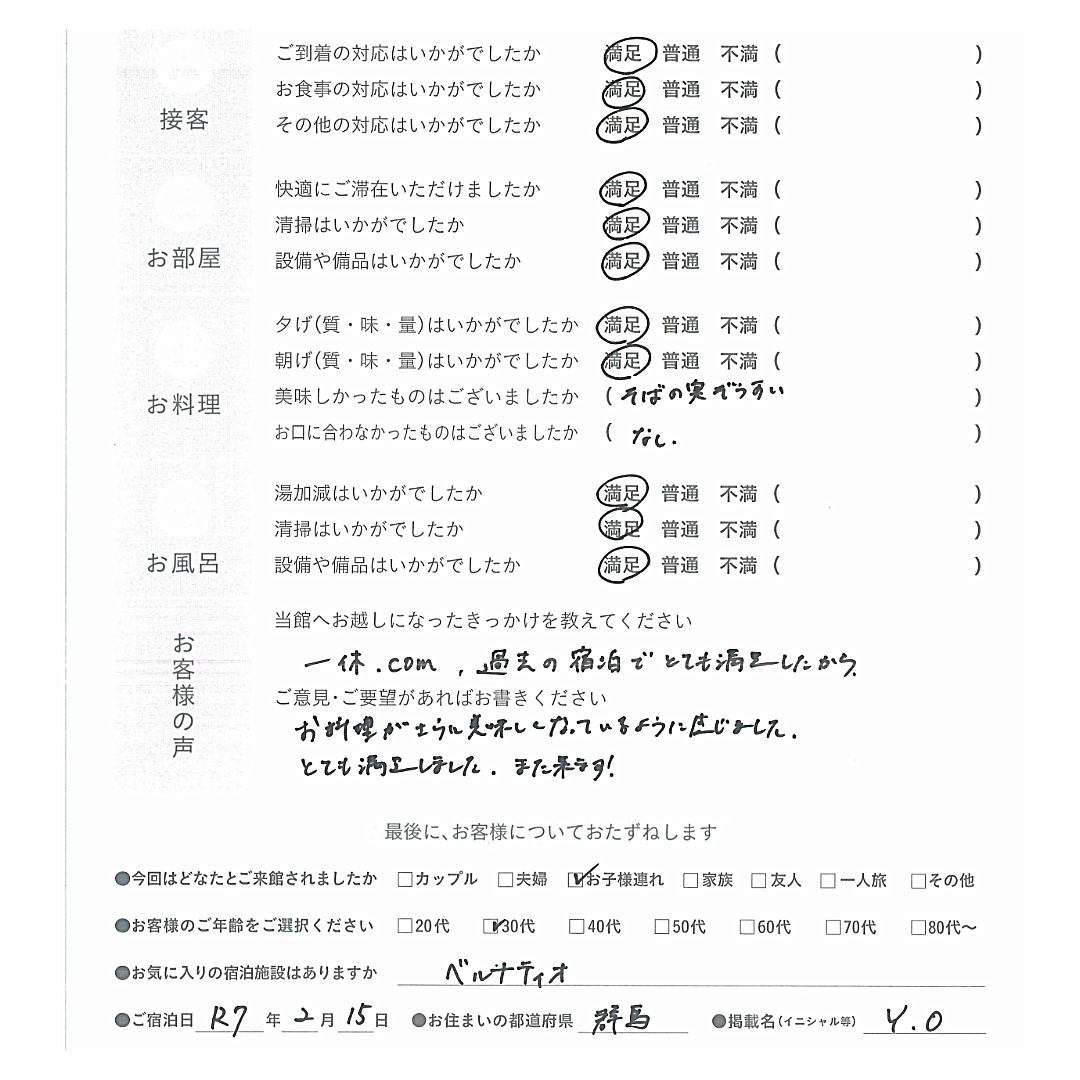 接客
ご到着の対応はいかがでしたか 満足 普通 不満 ( )
お食事の対応はいかがでしたか 満足 普通 不満 ( )
その他の対応はいかがでしたか 満足 普通 不満 ( )
お部屋
快適にご滞在いただけましたか 満足 普通 不満 ( )
清掃はいかがでしたか 満足 普通 不満 ( )
設備や備品はいかがでしたか 満足 普通 不満 ( )
お料理
夕げ(質・味・量)はいかがでしたか 満足 普通 不満 ( )
朝げ(質・味・量)はいかがでしたか 満足 普通 不満 ( )
美味しかったものはございましたか ( そばの実ぞうすい )
お口に合わなかったものはございましたか ( なし. )
お風呂
湯加減はいかがでしたか 満足 普通 不満 ( )
清掃はいかがでしたか 満足 普通 不満 ( )
設備や備品はいかがでしたか 満足 普通 不満 ( )
お客様の声
当館へお越しになったきっかけを教えてください
一休.com , 過去の宿泊でとても満足したから.
ご意見・ご要望があればお書きください
お料理がさらに美味しくなっているように感じました.
とても満足しました. また来ます!
最後に、お客様についておたずねします
●今回はどなたとご来館されましたか □カップル □夫婦 ☑お子様連れ □家族 □友人 □一人旅 □その他
●お客様のご年齢をご選択ください □20代 ☑30代 □40代 □50代 □60代 □70代 □80代〜
●お気に入りの宿泊施設はありますか ベルナティオ
●ご宿泊日 R7 年 2 月 15 日 ●お住まいの都道府県 群馬 ●掲載名(イニシャル等) Y.O